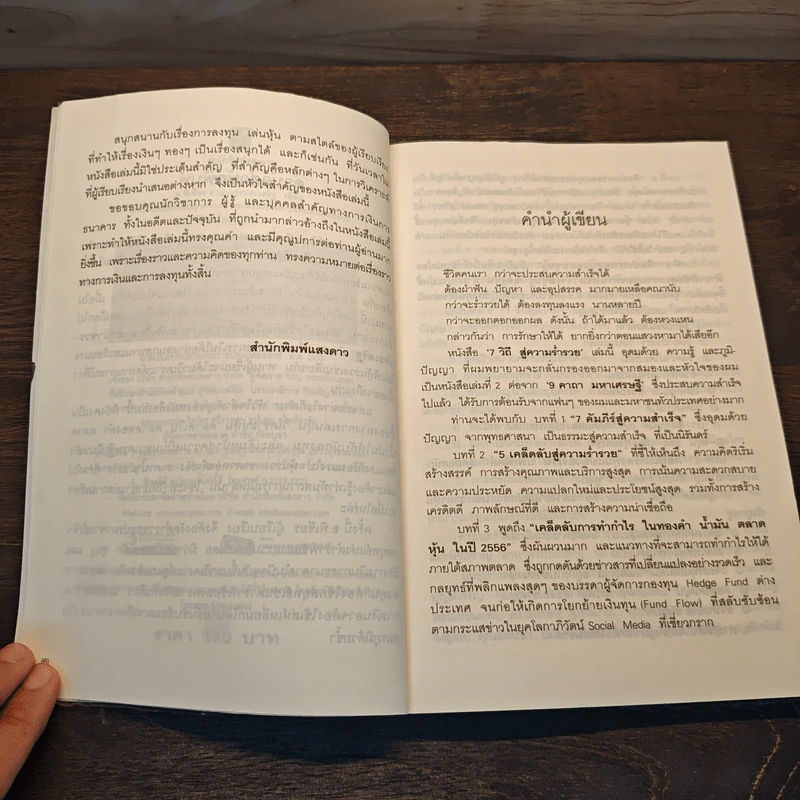 สนุกสนานกับเรื่องการลงทุน เล่นหุ้น ตามสไตล์ของผู้เรียบเรียง
ที่ทำให้เรื่องเงินๆ ทองๆ เป็นเรื่องสนุกได้ และก็เช่นกัน ที่วันเวลาใน
หนังสือเล่มนี้มิใช่ประเด็นสำคัญ ที่สำคัญคือหลักต่างๆ ในการวิเคราะห์
ที่ผู้เรียบเรียงนำเสนอต่างหาก จึงเป็นหัวใจสำคัญของหนังสือเล่มนี้
ขอขอบคุณนักวิชาการ ผู้รู้ และบุคคลสำคัญทางการเงินการ
ธนาคาร ทั้งในอดีตและปัจจุบัน ที่ถูกนำมากล่าวอ้างถึงในหนังสือเล่มนี้
เพราะทำให้หนังสือเล่มนี้ทรงคุณค่า และมีคุณูปการต่อท่านผู้อ่านมาก
ยิ่งขึ้น เพราะเรื่องราวและความคิดของทุกท่าน ทรงความหมายต่อเรื่องราว
ทางการเงินและการลงทุนทั้งสิ้น
สำนักพิมพ์แสงดาว
คำนำผู้เขียน
ชีวิตคนเรา กว่าจะประสบความสำเร็จได้
ต้องฝ่าฟัน ปัญหา และอุปสรรค มากมายเหลือคณานับ
กว่าจะร่ำรวยได้ ต้องลงทุนลงแรง นานหลายปี
กว่าจะออกดอกออกผล ดังนั้น ถ้าได้มาแล้ว ต้องหวงแหน
กล่าวกันว่า การรักษาให้ได้ ยากยิ่งกว่าตอนแสวงหามาได้เสียอีก
หนังสือ "7 วิถี สู่ความร่ำรวย" เล่มนี้ อุดมด้วย ความรู้ และภูมิ-
ปัญญา ที่ผมพยายามจะกลั่นกรองออกมาจากสมองและหัวใจของผม
เป็นหนังสือเล่มที่ 2 ต่อจาก "9 คาถา มหาเศรษฐี" ซึ่งประสบความสำเร็จ
ไปแล้ว ได้รับการต้อนรับจากแฟนๆ ของผมและมหาชนทั่วประเทศอย่างมาก
ท่านจะได้พบกับ บทที่ 1 "7 คัมภีร์สู่ความสำเร็จ" ซึ่งอุดมด้วย
ปัญญา จากพุทธศาสนา เป็นธรรมะสู่ความสำเร็จ ที่เป็นนิรันดร์
บทที่ 2 "5 เคล็ดลับสู่ความร่ำรวย" ที่ชี้ให้เห็นถึง ความคิดริเริ่ม
สร้างสรรค์ การสร้างคุณภาพและบริการสูงสุด การเน้นความสะดวกสบาย
และความประหยัด ความแปลกใหม่และประโยชน์สูงสุด รวมทั้งการสร้าง
เครดิตดี ภาพลักษณ์ที่ดี และการสร้างความน่าเชื่อถือ
บทที่ 3 พูดถึง "เคล็ดลับการทำกำไร ในทองคำ น้ำมัน ตลาด
หุ้น ในปี 2556" ซึ่งผันผวนมาก และแนวทางที่จะสามารถทำกำไรให้ได้
ภายใต้สภาพตลาด ซึ่งถูกกดดันด้วยข่าวสารที่เปลี่ยนแปลงอย่างรวดเร็ว และ
กลยุทธ์ที่พลิกแพลงสุดๆ ของบรรดาผู้จัดการกองทุน Hedge Fund ต่าง
ประเทศ จนก่อให้เกิดการโยกย้ายเงินทุน (Fund Flow) ที่สลับซับซ้อน
ตามกระแสข่าวในยุคโลกาภิวัตน์ Social Media ที่เชี่ยวกราก